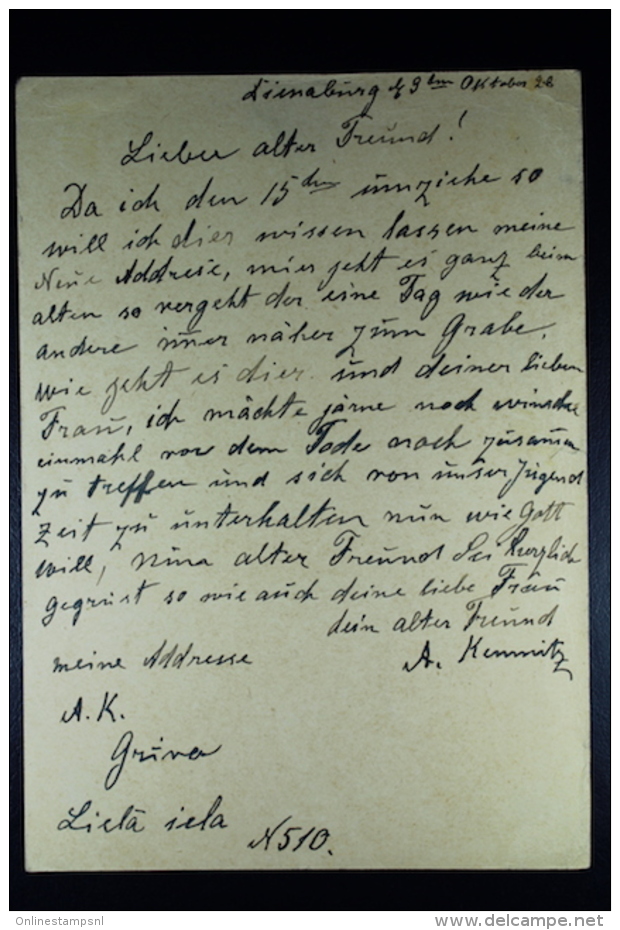 Dienaburg d 9ten Oktober 28
Lieber alter Freund!
Da ich den 15ten umziehe so
will ich dier wissen lassen meine
Neue Addrese, mier geht es ganz beim
alten so vergeht der eine Tag wie der
andere imer näher zum Grabe.
wie geht es dier und deiner lieben
Frau, ich mächte järne noch winsche
einmahl vor dem Tode noch zusamm
zu treffen und sich von unser Jugend
Zeit zu unterhalten nun wie Gott
will, nun alter Freund Sei herzlich
gegrüst so wie auch deine liebe Frau
dein alter Freund
A. Kemnitz
meine Addresse
A. K.
Griva
Lielā iela
N 510.
Onlinestampsnl